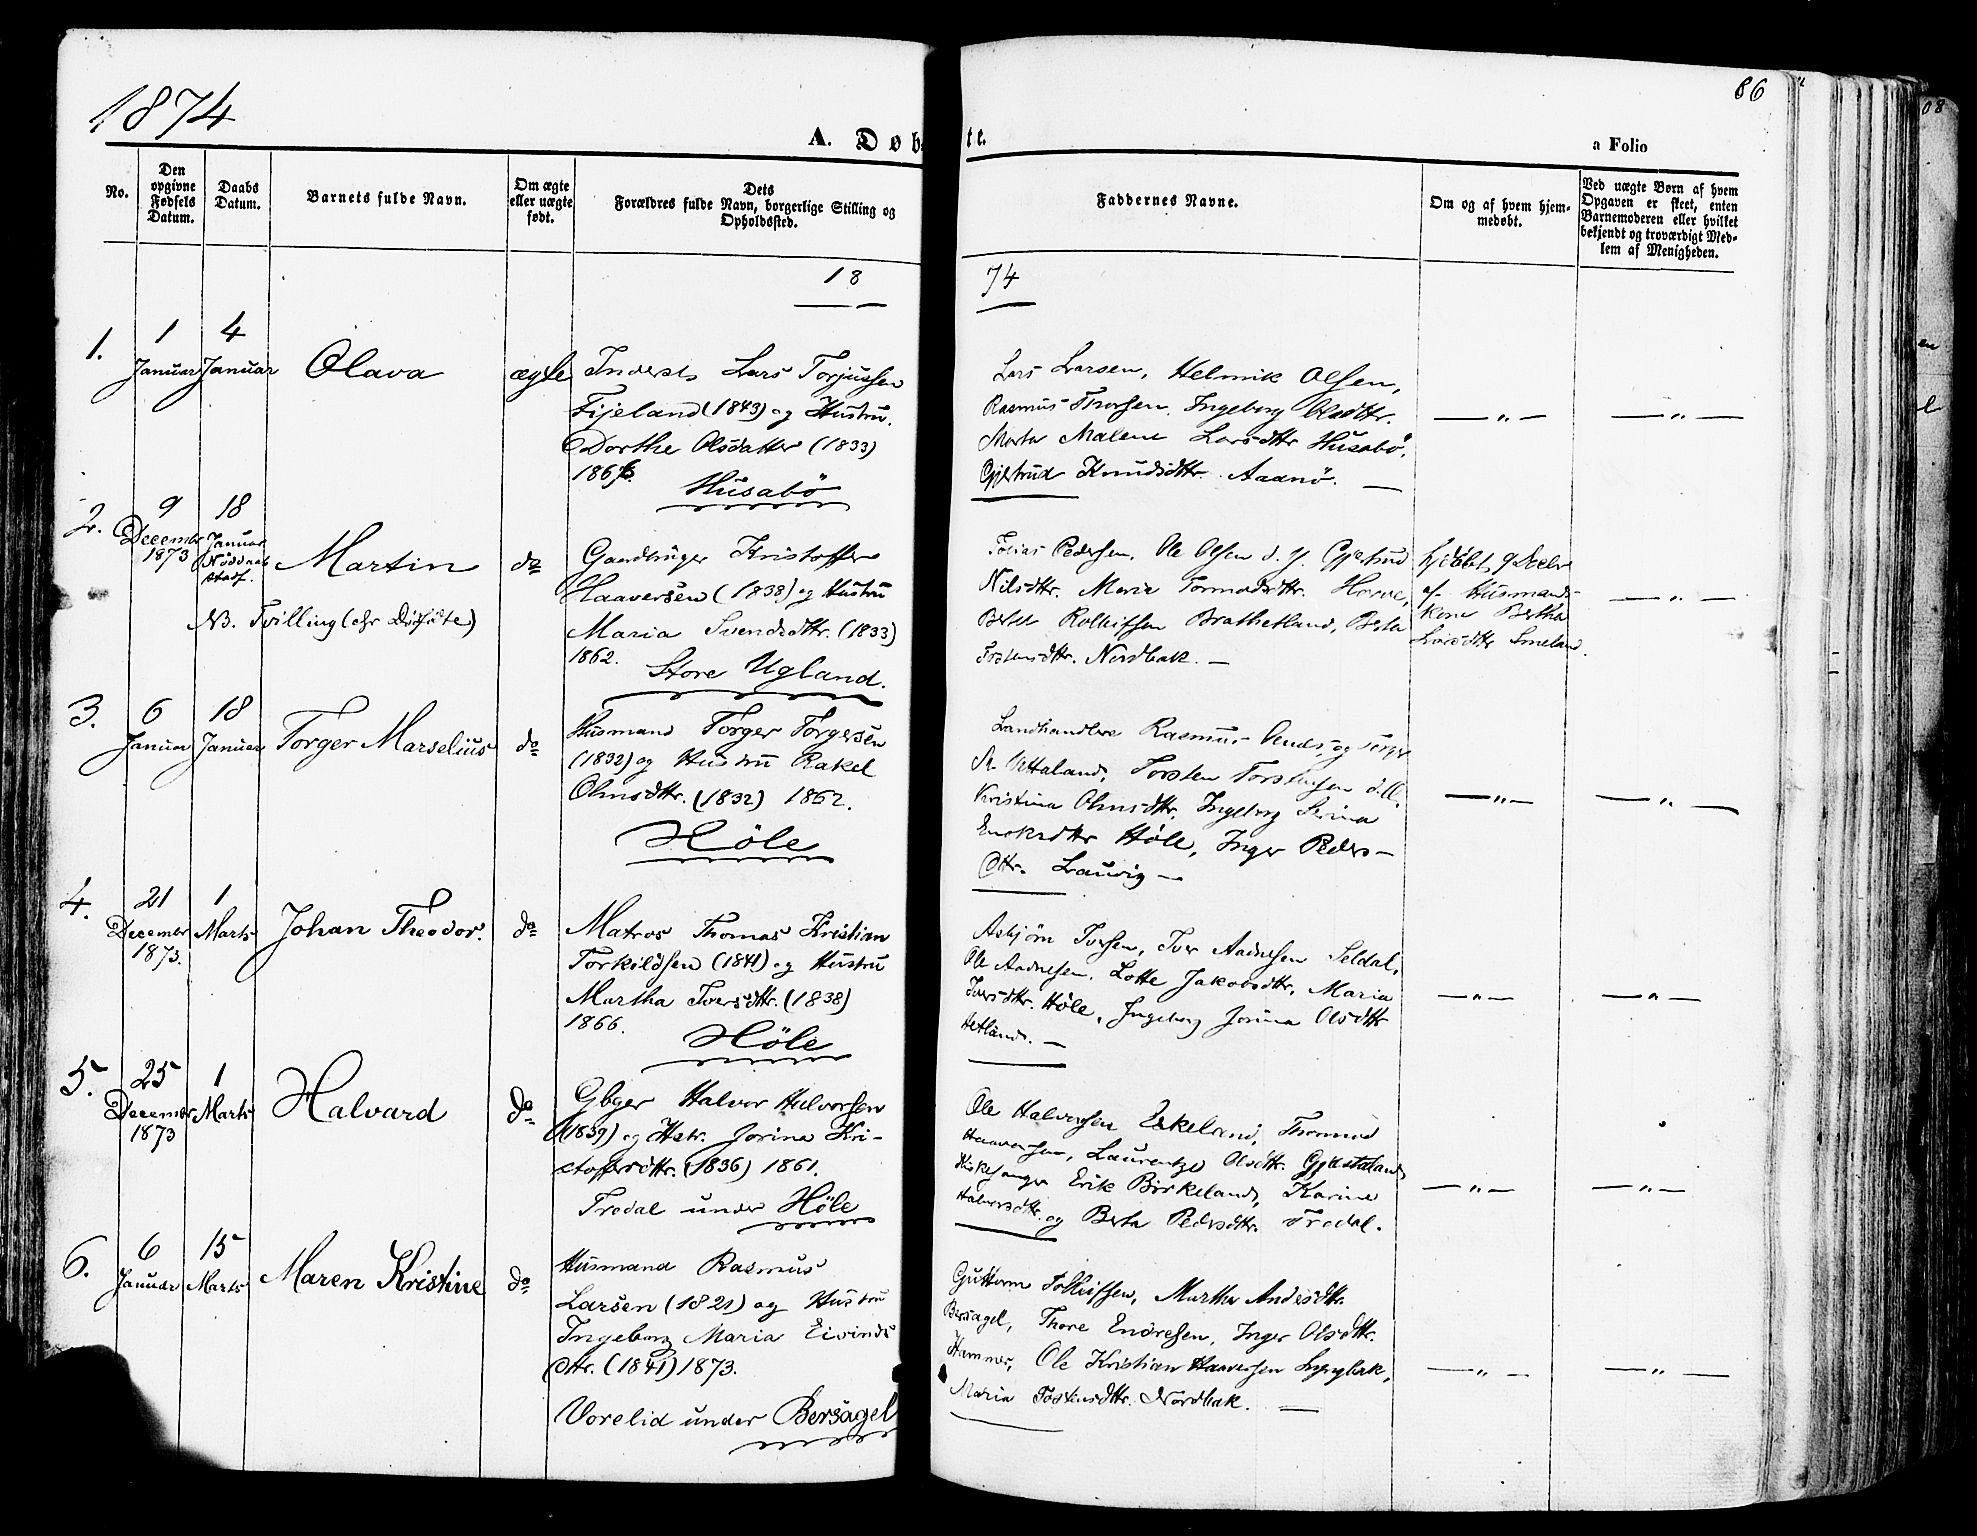 1874
86
A. Døb
te.
a Folio
No.
Den opgivne Fødsels Datum.
Daabs Datum.
Barnets fulde Navn.
Om ægte eller uægte født.
Dets Forældres fulde Navn, borgerlige Stilling og Opholdssted.
Faddernes Navne.
Om og af hvem hjemmedøbt.
Ved uægte Børn af hvem Opgaven er skeet, enten Barnemoderen eller hvilket bekjendt og troværdigt Medlem af Menigheden.
18
74
1.
1 Januar
4 Januar
Olava
ægte
Inderst Lars Torjussen
Fijeland (1843) og Hustru.
Dorthe Olsdatter (1833)
186
Husabö
Lars Larsen, Helmik Olsen,
Rasmus Thorsen, Ingeborg Olsdttr.
Marta Malene Larsdttr Husabö,
Gjertrud Knudsdttr. Aadnö. —
— " —
— " —
2.
9 December 1873
18 Januar
Martin
do
NB. Tvilling
Gaardbruger Kristoffer
Haaversen (1838) og Hustru
Maria Svendsdttr. (1833)
1862.
Store Ugland.
Tobias Pedersen, Ole Olsen d. y. Gjertrud
Nilsdttr. Maria Tormodsdttr.
Bertel Rolleifsen Brathetland, Berta
Tostensdttr. Nordbak. —
hjdöbt 9 Decbr
af Husmands-
Kone Bertha
Larsdttr Smeland.
— " —
3.
6 Januar
18 Januar
Torger Marselius
do
Husmand Torger Torgersen
(1832) og Hustru Rakel
Olmsdttr. (1832) 1862.
Höle
Landhandlere Rasmus og Torger
Torsten Torstensen
Kristina Olmsdttr, Ingeborg Serina
Enoksdttr Höle, Inger Peders-
dttr. Lauvig —
— " —
— " —
4.
21 December 1873.
1 Marts
Johan Theodor.
do
Matros Thomas Kristian
Torkildsen (1841) og Hustru
Martha Iversdttr. (1838)
1866.
Höle
Asbjörn Iversen, Iver Aadnesen Seldal,
Ole Aadnesen, Lotte Jakobsdttr, Maria
Iversdttr. Höle, Ingeborg Jorina Olsdttr
Hetland. —
— " —
— " —
5.
25 December 1873
1 Marts
Halvard
do
Gbger Halvor Halvorsen
(1839) og Hstr. Jorina Kri-
stoffersdttr. (1836) 1861.
Tredal under Höle
Ole Halvorsen Eskeland, Thormod
Haaversen, Laurentze Olsdttr. Gjesteland,
Kirkesanger Erik Birkeland, Karine
Halvorsdttr. og Berta Pedersdttr. Tredal.
— " —
— " —
6.
6 Januar
15 Marts
Maren Kristine
do
Husmand Rasmus
Larsen (1821) og Hustru
Ingeborg Maria Eivinds
dttr. (1841) 1873.
Vorelid under Bersagel
Guttorm Tolleifsen, Marthe Andersdttr.
Bersagel, Thore Endresen, Inger Olsdttr.
Hammer, Ole Kristian Haaversen Lyngbak,
Maria Tostensdttr. Nordbak. —
— " —
— " —